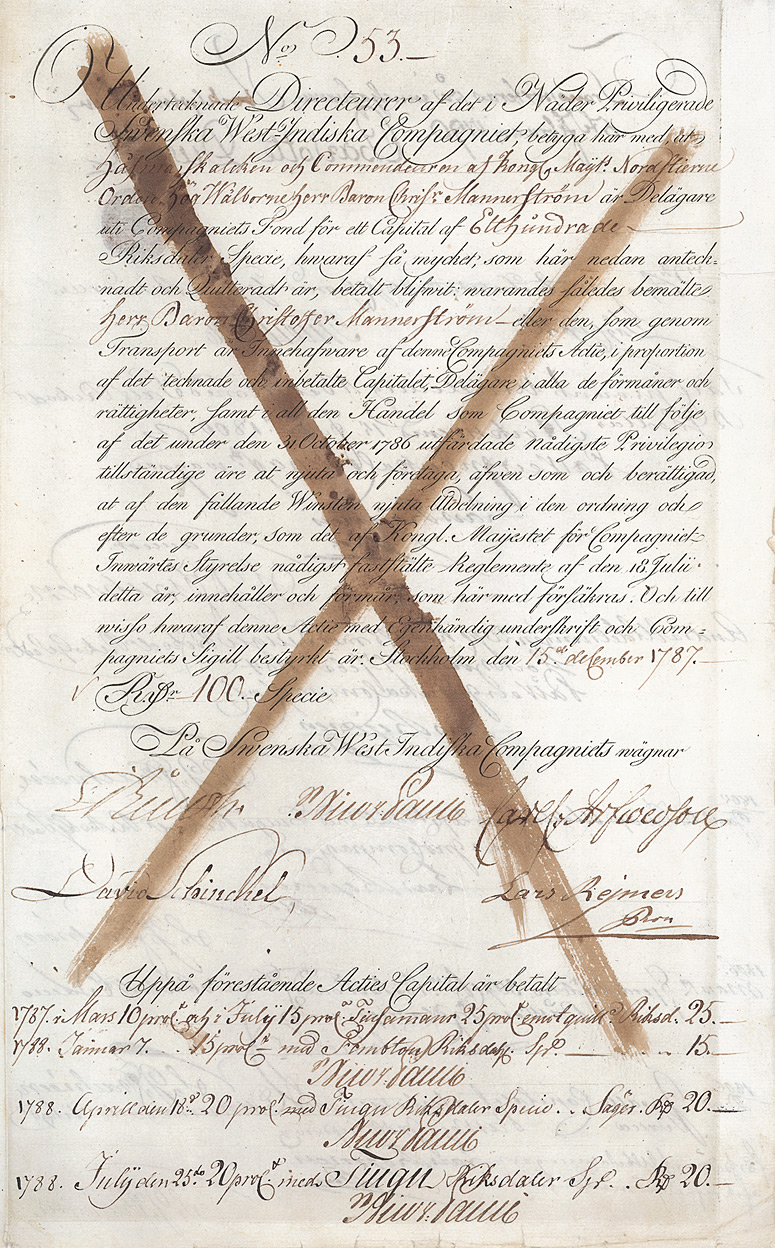 No. 53.
Undertecknade Directeurer af det i Nåder Priviligerade
Swenska West-Indiska Compagniet, betyga här med, at
Hofmarskalcken och Commendeuren af Kongl. Mayts. Nordstierne
Orden Hög Wälborne Herr Baron Christ. Mannerström är Delägare
uti Compagniets Fond för ett Capital af Etthundrade
Riksdaler Specie, hwaraf så mycket, som här nedan anteck-
nadt och Quitteradt är, betalt blifwit: warandes således bemälte
Herr Baron Christoffer Mannerström eller den, som genom
Transport är Innehafware af denne Compagniets Actie, i proportion
af det tecknade och inbetalte Capitalet, Delägare i alla de förmåner och
rättigheter, samt i all den Handel som Compagniet till följe
af det under den 31 October 1786 utfärdade nådigste Privilegio
tillständige äre at njuta och företaga, äfwen som och berättigad,
at af den fallande Winsten njuta Utdelning i den ordning och
efter de grunder, som det af Kongl. Majestet för Compagniets
Inwärtes Styrelse nådigst fastställte Reglemente af den 18 Julii
detta år, innehåller och förmår, som här med försäkras. Och till
wisso hwaraf denne Actie med Egenhändig underskrift och Com-
pagniets Sigill bestyrkt är. Stockholm den 15de december 1787.
Rdr 100. Specie
På Swenska West Indiska Compagniets wägnar
Carl Arfwedson
David Schinckel, Lars Rejmers
Uppå förestående Acties Capital är betalt
1787 i Mars 10 proCt och i Julij 15 proCt Tilsamans 25 proCt Riksd. 25.
1788. Januar 7. 15 proCt med Femton Riksdr. Spe. 15.
1788. Aprill den 18de 20 proCt med Tiugu Riksdaler Specie. Säger Rd 20.
1788. Julij den 25te 20 proCt med Tiugu Riksdaler Spe. Rd 20.